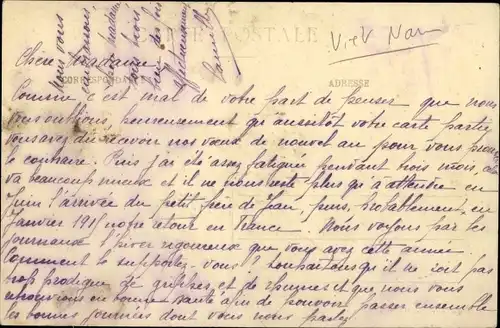 CARTE POSTALE
Chère Madame,
CORRESPONDANCE
ADRESSE
Comme c'est mal de votre part de penser que nous
vous oublions, heureusement qu'aussitôt votre carte partie
vous avez dû recevoir nos vœux de nouvel an pour vous prouver
le contraire. Puis j'ai été assez fatiguée pendant trois mois, cela
va beaucoup mieux et il ne nous reste plus qu'à attendre en
Juin l'arrivée du petit frère de Jean, puis, probablement, en
Janvier 1915 notre retour en France. Nous voyons par les
journaux l'hiver rigoureux que vous avez cette année.
Comment le supportez-vous? Souhaitons qu'il ne soit pas
trop prodigue de grippes et de rhumes et que nous vous
retrouvions en bonne santé afin de pouvoir passer ensemble
les bonnes journées dont vous nous parlez
Nous vous